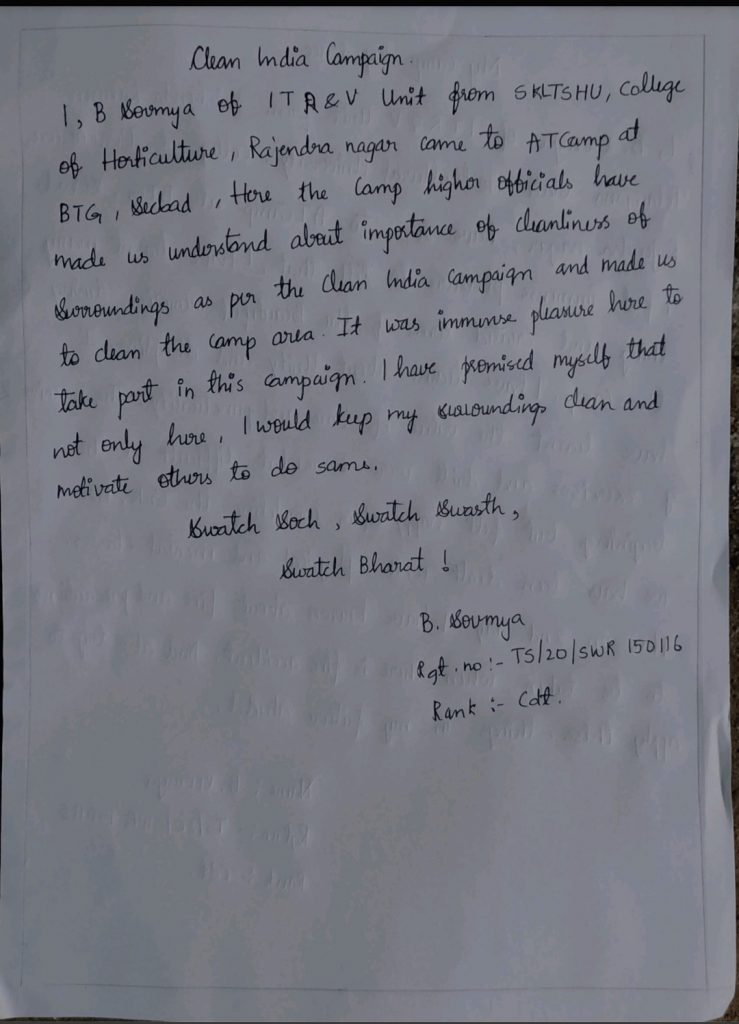 Clean India Campaign.
I, B Soumya of I T R & V Unit from SKLTSHU, College
of Horticulture, Rajendra nagar came to ATCamp at
BTG, Secbad, Here the camp higher officials have
made us understand about importance of cleanliness of
surroundings as per the Clean India Campaign and made us
to clean the camp area. It was immense pleasure here to
take part in this campaign. I have promised myself that
not only here, I would keep my surroundings clean and
motivate others to do same.
Swatch Soch, Swatch Swasth,
Swatch Bharat !
B. Soumya
Rgt. no :- TS/20/SWR 150116
Rank :- Cdt.